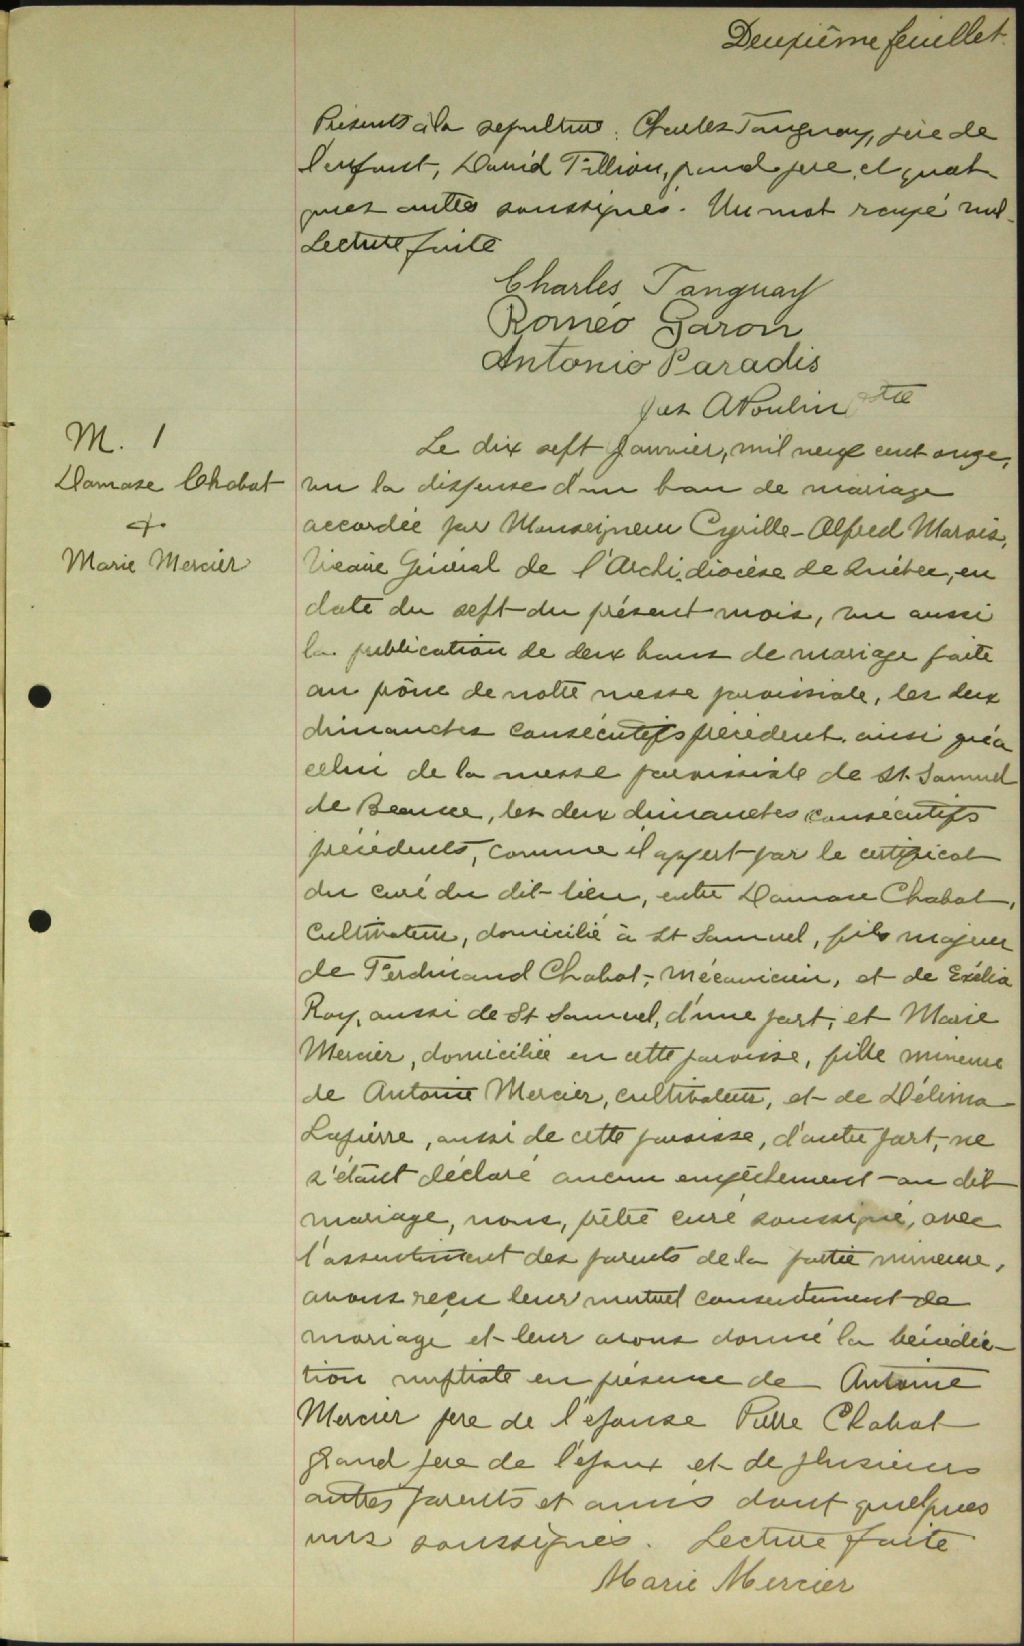 Deuxième feuillet.
Présents à la sepulture: Charles Tanguay, père de
l'enfant, David Fillion, grand père, et quel-
ques autres soussignés. Un mot rayé nul.
Lecture faite
Charles Tanguay
Roméo Garon
Antonio Paradis
Jos A Poulin Ptre
M. 1
Damase Chabot
+
Marie Mercier
Le dix sept Janvier, mil neuf cent onze,
vu la dispense d'un ban de mariage
accordée par Monseigneur Cyrille-Alfred Marois,
Vicaire Général de l'Archidiocèse de Québec, en
date du sept du présent mois, vu aussi
la publication de deux bans de mariage faite
au prône de notre messe paroissiale, les deux
dimanches consécutifs précédent, ainsi qu'à
celui de la messe paroissiale de St. Samuel
de Beauce, les deux dimanches consécutifs
précédents, comme il appert par le certificat
du curé du dit lieu, entre Damase Chabot,
cultivateur, domicilié à St Samuel, fils majeur
de Ferdinand Chabot, mécanicien, et de Exélia
Roy, aussi de St Samuel, d'une part, et Marie
Mercier, domiciliée en cette paroisse, fille mineure
de Antoine Mercier, cultivateur, et de Délima
Lapierre, aussi de cette paroisse, d'autre part, ne
s'étant déclaré aucun empêchement au dit
mariage, nous, prêtre curé soussigné, avec
l'assentiment des parents de la partie mineure,
avons reçu leur mutuel consentement de
mariage et leur avons donné la bénédic-
tion nuptiale en présence de Antoine
Mercier père de l'épouse Pierre Chabot
grand père de l'époux et de plusieurs
autres parents et amis dont quelques
uns soussignés. Lecture faite
Marie Mercier